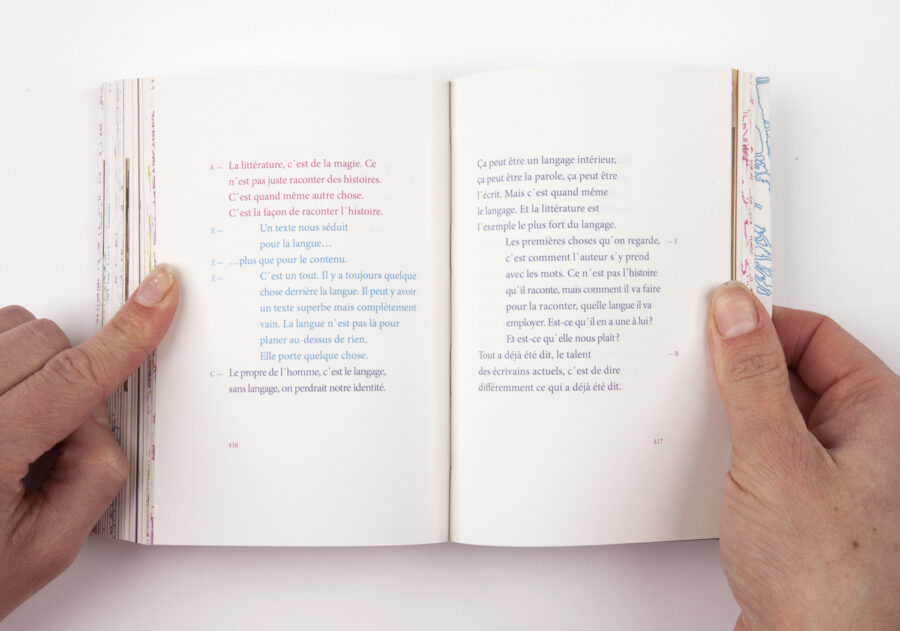 A — La littérature, c´est de la magie. Ce
n´est pas juste raconter des histoires.
C´est quand même autre chose.
C´est la façon de raconter l´histoire.
E — Un texte nous séduit
pour la langue…
E — …plus que pour le contenu.
E — C´est un tout. Il y a toujours quelque
chose derrière la langue. Il peut y avoir
un texte superbe mais complètement
vain. La langue n´est pas là pour
planer au-dessus de rien.
Elle porte quelque chose.
C — Le propre de l´homme, c´est le langage,
sans langage, on perdrait notre identité.
416
Ça peut être un langage intérieur,
ça peut être la parole, ça peut être
l´écrit. Mais c´est quand même
le langage. Et la littérature est
l´exemple le plus fort du langage.
Les premières choses qu´on regarde, — E
c´est comment l´auteur s´y prend
avec les mots. Ce n´est pas l´histoire
qu´il raconte, mais comment il va faire
pour la raconter, quelle langue il va
employer. Est-ce qu´il en a une à lui?
Et est-ce qu´elle nous plaît?
Tout a déjà été dit, le talent — B
des écrivains actuels, c´est de dire
différemment ce qui a déjà été dit.
417